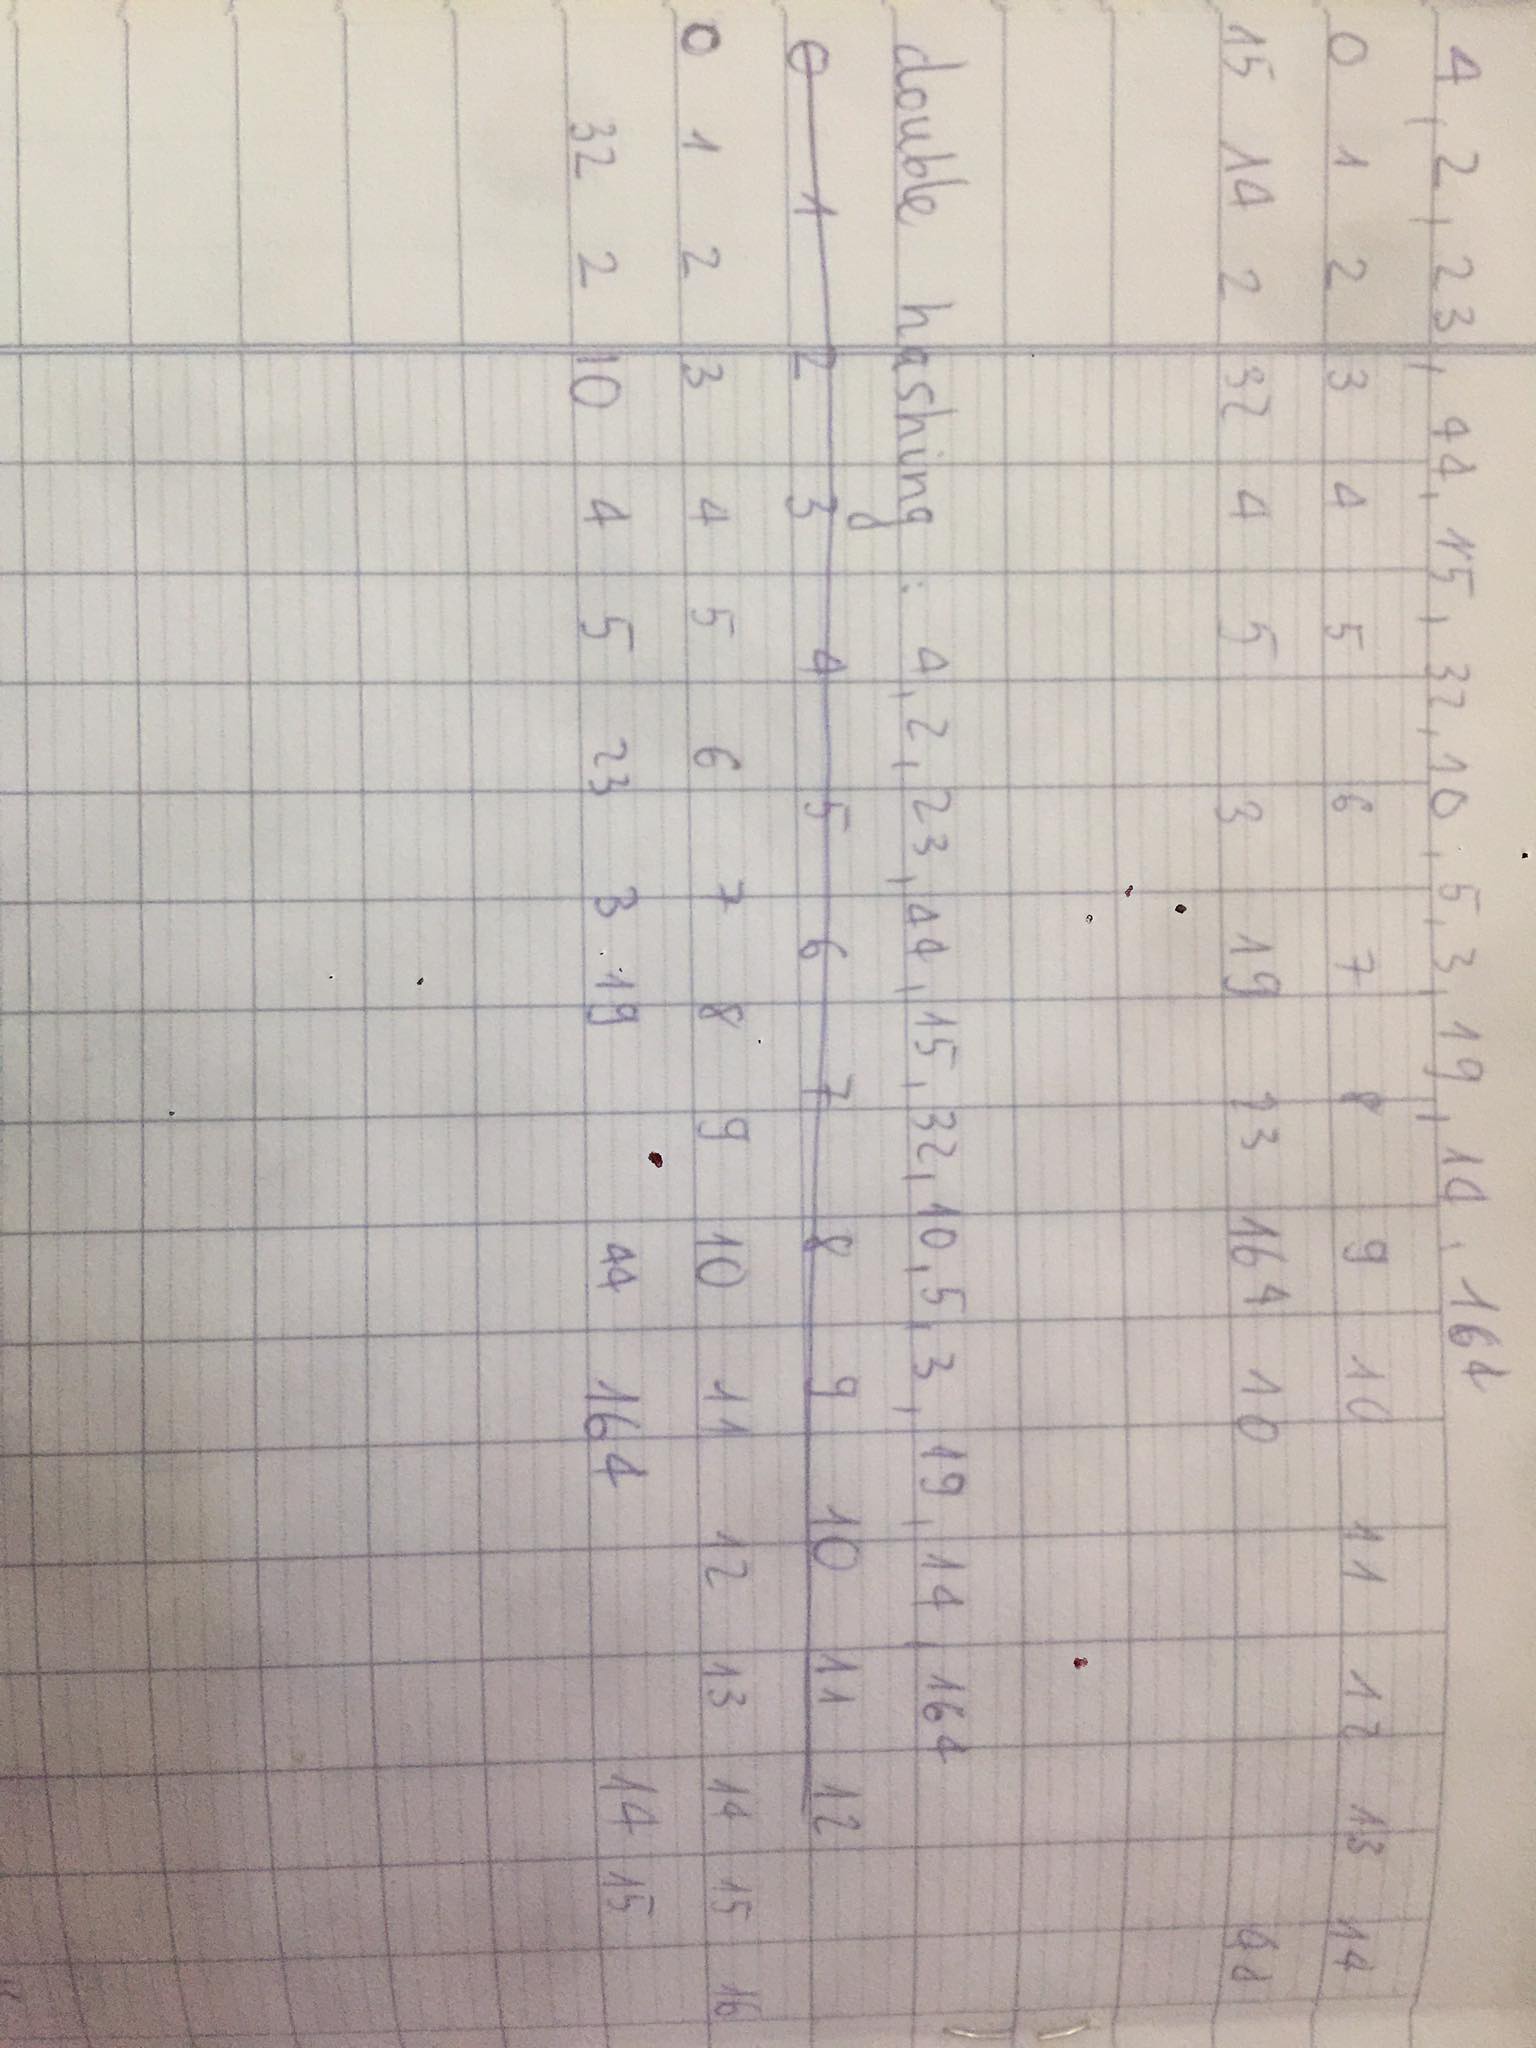 4, 2, 23, 44, 15, 32, 10, 5, 3, 19, 14, 164
0 1 2 3 4 5 6 7 8 9 10 11 12 13 14
15 14 2 32 4 5 3 19 23 164 10 44
double hashing : 4, 2, 23, 44, 15, 32, 10, 5, 3, 19, 14, 164
0 1 2 3 4 5 6 7 8 9 10 11 12
0 1 2 3 4 5 6 7 8 9 10 11 12 13 14 15 16
32 2 10 4 5 23 3 19 44 164 14 15